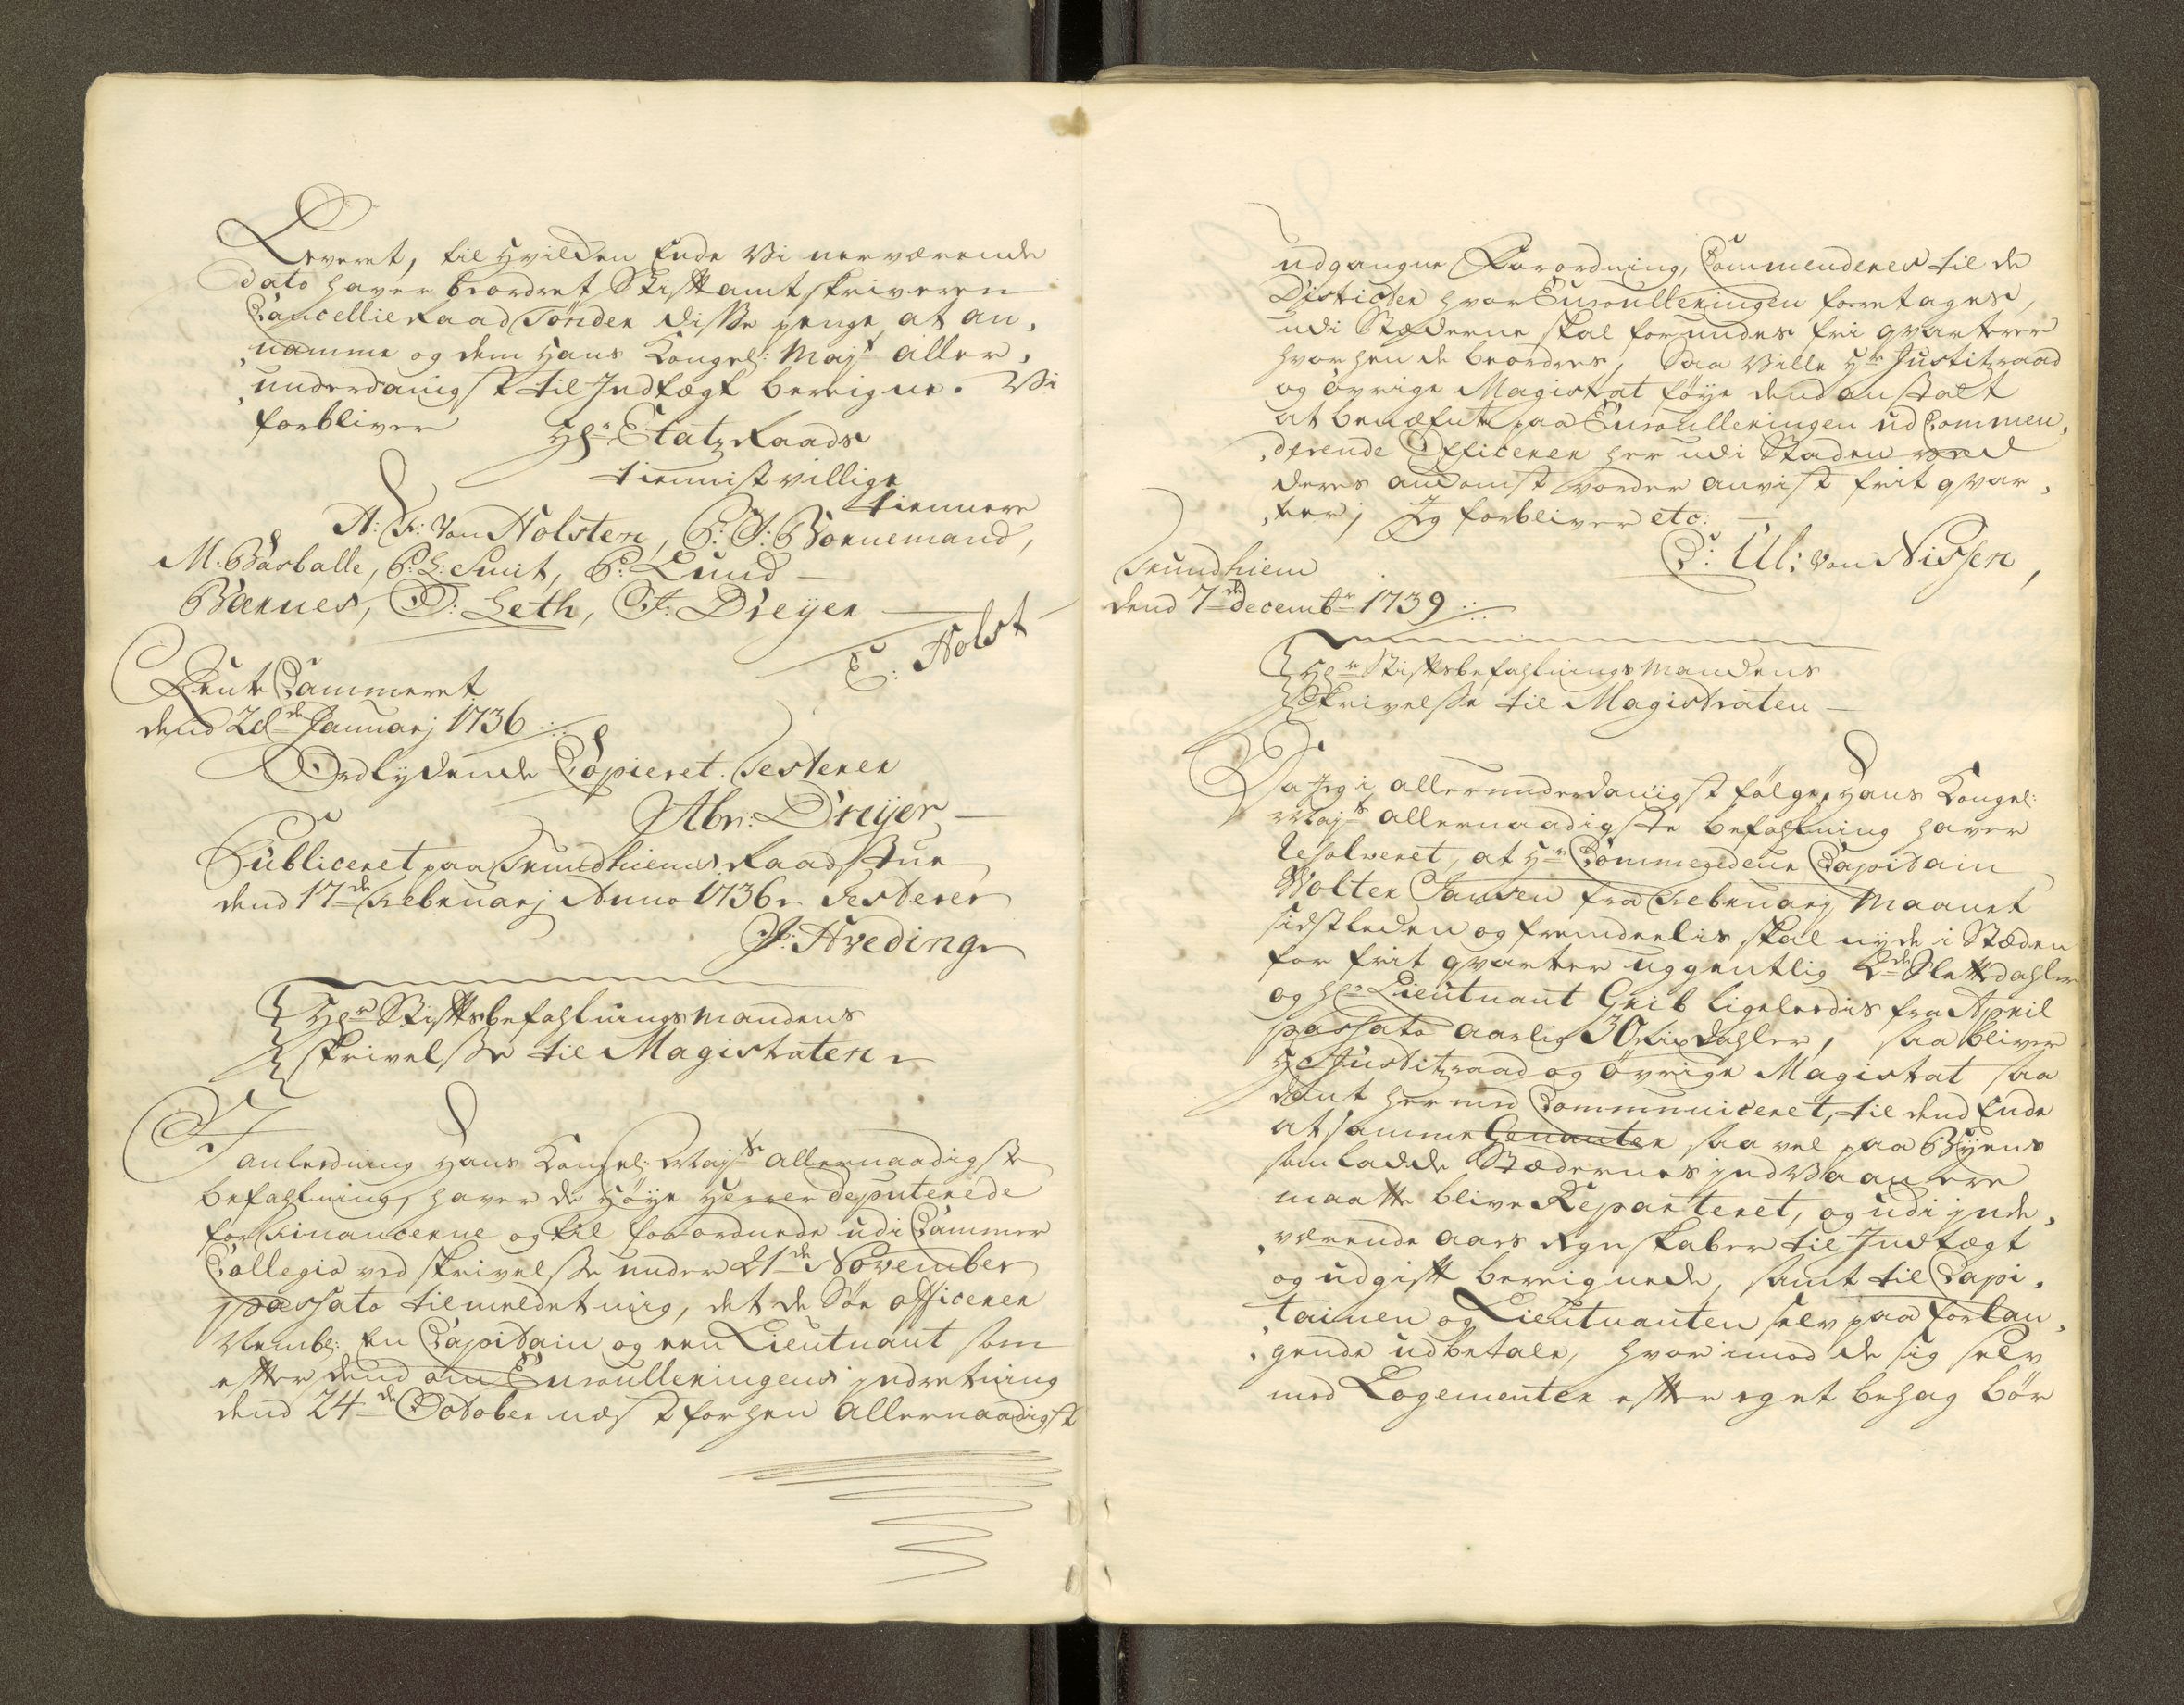 Leveret, til hvilken Ende Vi nerværende
dato haver beordret Stiftamtskriveren
Cancellieraad Tønder disse penge at an,
,namme og dem Hans Kongel: Mayt aller,
,underdanigst til Indtægt bereigne. Vi
forbliver Hr: Etatz Raads
tiennistvillige
tiennere
A: F: von Holsten, C: F: Bornemand,
M. Basballe, P: L: Smit, P: Lund
Bærnes, D: Leth, F: Dreyer
C: Holst
Rente Cammeret
dend 28de Januarj 1736 ./.
Ordlydende Copieret. Testerer
Abr: Dreyer
Publiceret paa Trundhiems Raadstue
dend 17de Februarj Anno 1736. Testerer
J: Hveding
Hr Stiftsbefahlningsmandens
skrivelsse til Magistraten
I anledning Hans Kongel: Maysts allernaadigste
befahlning, haver de høye Herrer Deputerede
for Financerne og til forordnede udi Cammer
Collegio ved skrivelsse under 21de November
passato tilmeldet mig, det de Søe officerer
Nembl: En Capitain og een Lieutnant som
efter dend om Enroulleringens indretning
dend 24de October næst forhen allernaadigst
udgangne Forordning, Commenderes til de
Districter hvor Enroulleringen foretages,
udi Stæderne skal forundes fri qvarterer
hvorhen de beordres, Saa Ville Hr Justitzraad
og øvrige Magistrat føye dend anstalt
at benæfnte paa Enroulleringen ud Commen,
,derende Officerer her udi Staden ved
deres ankomst vorder anvist frit qvar,
,teer; Jeg forbliver etc:
C: Ul: von Nissen,
Trundhiem
dend 7de decembr 1739 ./.
Hr Stiftsbefahlnings Mandens
Skrivelsse til Magistraten
Da Jeg i allerunderdanigst følge, Hans Kongel:
Mayts allernaadigste befahlning haver
Resolveret, at Hr Commandeur Capitain
Wolter Jansen fra Februarj Maanet
sidstleden og fremdeelis skal nyde i Stæden
for frit qvarteer ugentlig 2de Slettedahler
og Hr Lieutnant Grib ligeledis fra April
passato aarlig 30 Rixdahler, saa bliver
Hr Justitzraad og øvrige Magistrat saa
dant hermed Communiceret, til dend Ende
at samme saa vel paa Byens
som Ladde Stædernes indvaanere
maatte blive Reparteret, og udi inde,
,værende aars Regnskaber til Indtægt
og udgift bereignede, samt til Capi,
,tainen og Lieutnanten selv paa forlan,
,gende udbetale, hvorimod de sig selv
med Logementer efter eget behag bør